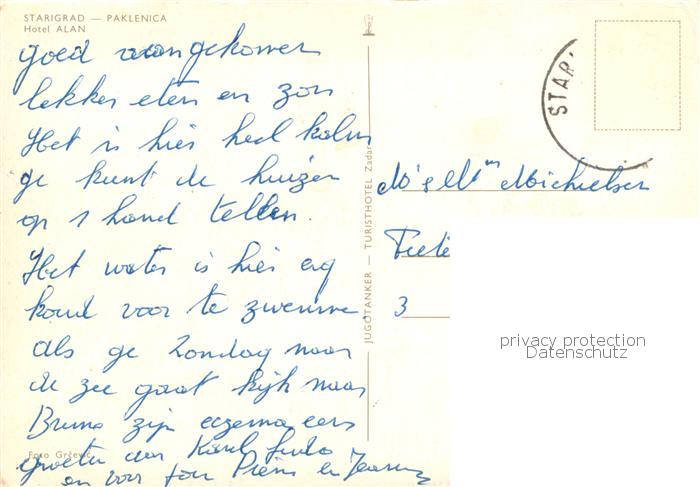 STARIGRAD — PAKLENICA
Hotel ALAN
goed aangekomen
lekker eten en zon
Het is hier heel kalm
ge kunt de huizen
op 1 hand tellen.
Het water is hier erg
koud voor te zwemme.
als ge Zondag naar
de zee gaat kijk naar
Bruno zijn eczema eers
groeten aan Karel
en voor Jeanny
Foto Grčević
JUGOTANKER — TURISTHOTEL Zadar
STAR.
M Michielsen
3
privacy protection
Datenschutz